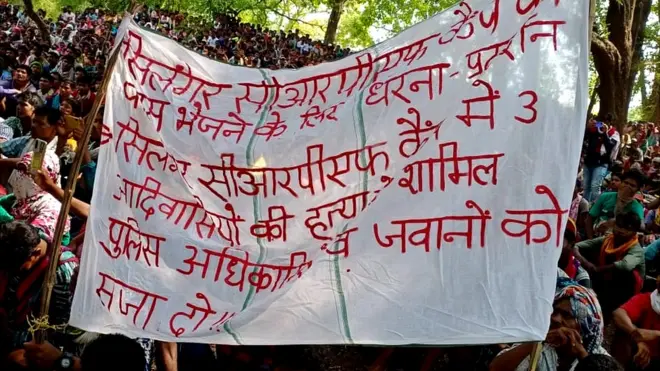 सिलंगेर सीआरपीएफ कैंप को
वापस भेजने के लिए धरना-प्रदर्शन
सिलगेर सीआरपीएफ कैंप में 3
आदिवासियों की हत्या शामिल
पुलिस अधिकारी व जवानों को
सजा दो!!